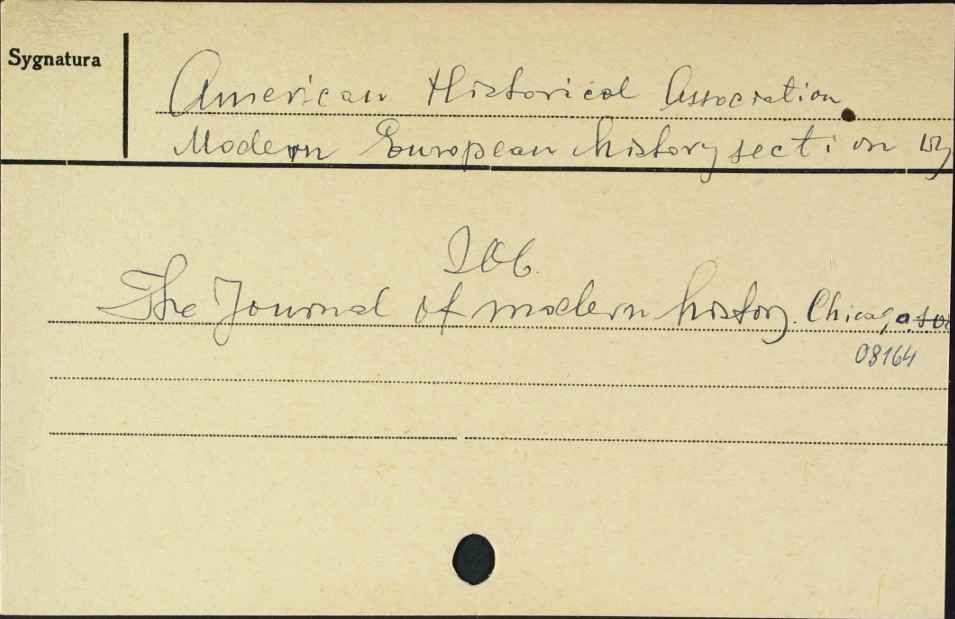 Sygnatura
American Historical Association.
Modern European history section
Zob.
The Journal of modern history. Chicago
08164